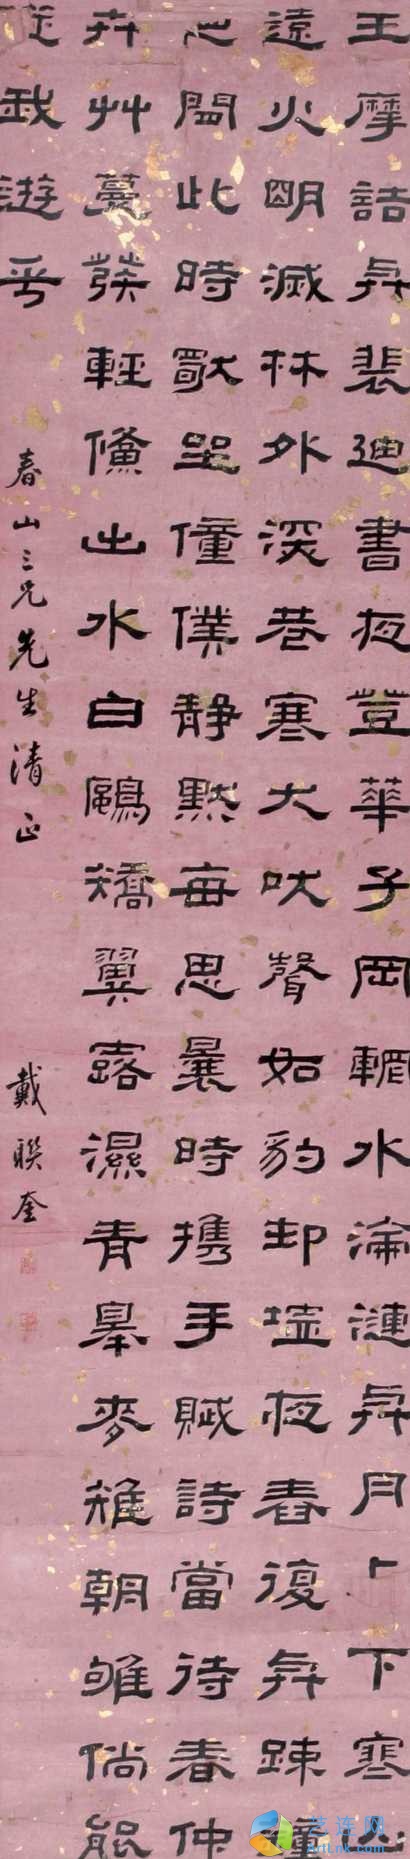 王摩詰與裴迪書夜登華子岡輞水淪漣與月上下寒山
遠火明滅林外深巷寒犬吠聲如豹邨墟夜舂復與踈鐘
間此時獨坐僮僕靜默每思曩時攜手賦詩當待春仲
卉艸蔓發輕鯈出水白鷗矯翼露濕青皋麥雉朝雊倘能
從我遊乎
春山三兄先生清正
戴聯奎
艺连网
ArtLnk.com